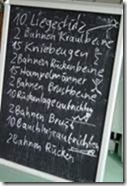 10 Liegestütz
2 Bahnen Kraulbeine
15 Kniebeugen
2 Bahnen Rückenbeine
5 Hampelmänner
2 Bahnen Brustbeine
10 Rückenlage aufrichten
2 Bahnen Brust
10 Bauchlage aufrichten
2 Bahnen Rücken